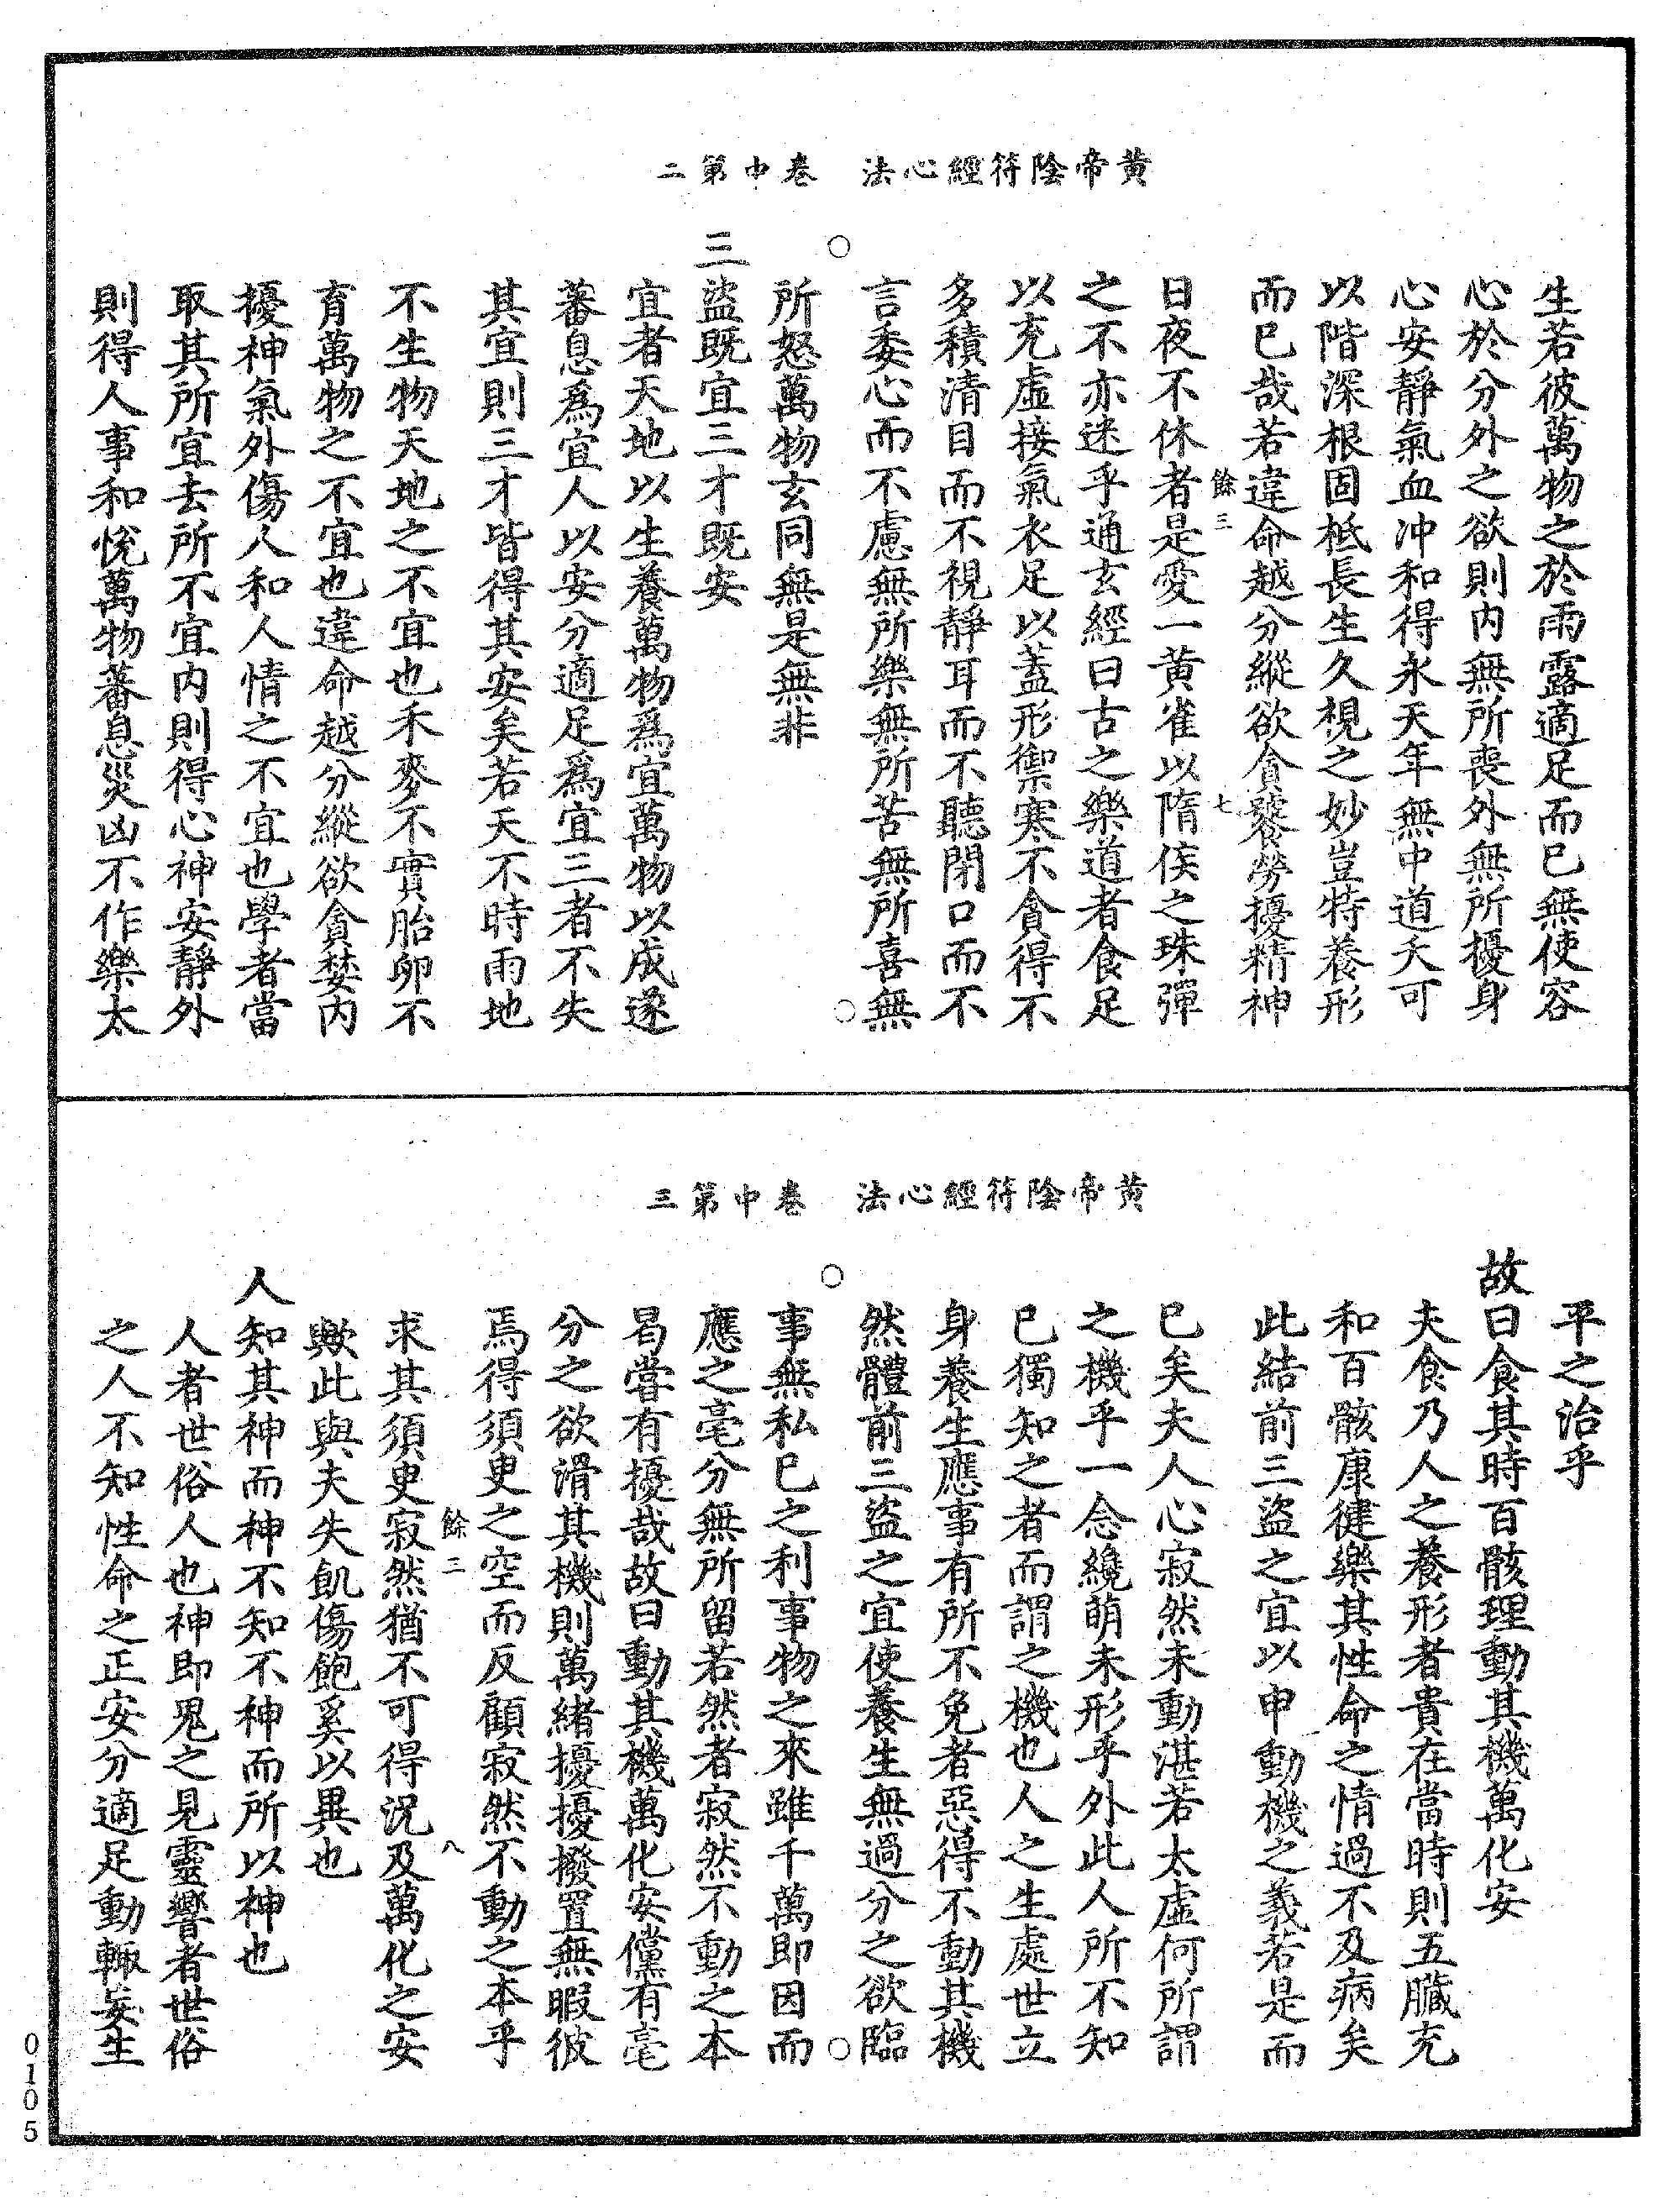 黃帝陰符經心法　卷中第二
生若彼萬物之於雨露適足而已無使容
心於分外之欲則內無所喪外無所擾身
心安靜氣血冲和得永天年無中道夭可
以階深根固柢長生久視之妙豈特養形
而已哉若違命越分縱欲貪饕勞擾精神
餘三　七
日夜不休者是愛一黃雀以隋侯之珠彈
之不亦迷乎通玄經曰古之樂道者食足
以充虛接氣衣足以蓋形禦寒不貪得不
多積清目而不視靜耳而不聽閉口而不
言委心而不慮無所樂無所苦無所喜無
所怒萬物玄同無是無非
三盜既宜三才既安
宜者天地以生養萬物爲宜萬物以成遂
蕃息爲宜人以安分適足爲宜三者不失
其宜則三才皆得其安矣若天不時雨地
不生物天地之不宜也禾麥不實胎卵不
育萬物之不宜也違命越分縱欲貪婪內
擾神氣外傷人和人情之不宜也學者當
取其所宜去所不宜內則得心神安靜外
則得人事和悅萬物蕃息災凶不作樂太
黃帝陰符經心法　卷中第三
平之治乎
故曰食其時百骸理動其機萬化安
夫食乃人之養形者貴在當時則五臟充
和百骸康健樂其性命之情過不及病矣
此結前三盜之宜以申動機之義若是而
已矣夫人心寂然未動湛若太虛何所謂
之機乎一念纔萌未形乎外此人所不知
已獨知之者而謂之機也人之生處世立
身養生應事有所不免者惡得不動其機
然體前三盜之宜使養生無過分之欲臨
事無私已之利事物之來雖千萬即因而
應之毫分無所留若然者寂然不動之本
曷嘗有擾哉故曰動其機萬化安儻有毫
分之欲滑其機則萬緒擾擾撥置無暇彼
焉得須臾之空而反顧寂然不動之本乎
餘三　八
求其須臾寂然猶不可得況及萬化之安
歟此與夫失飢傷飽奚以異也
人知其神而神不知不神而所以神也
人者世俗人也神即鬼之見靈響者世俗
之人不知性命之正安分適足動輒妄生
0105